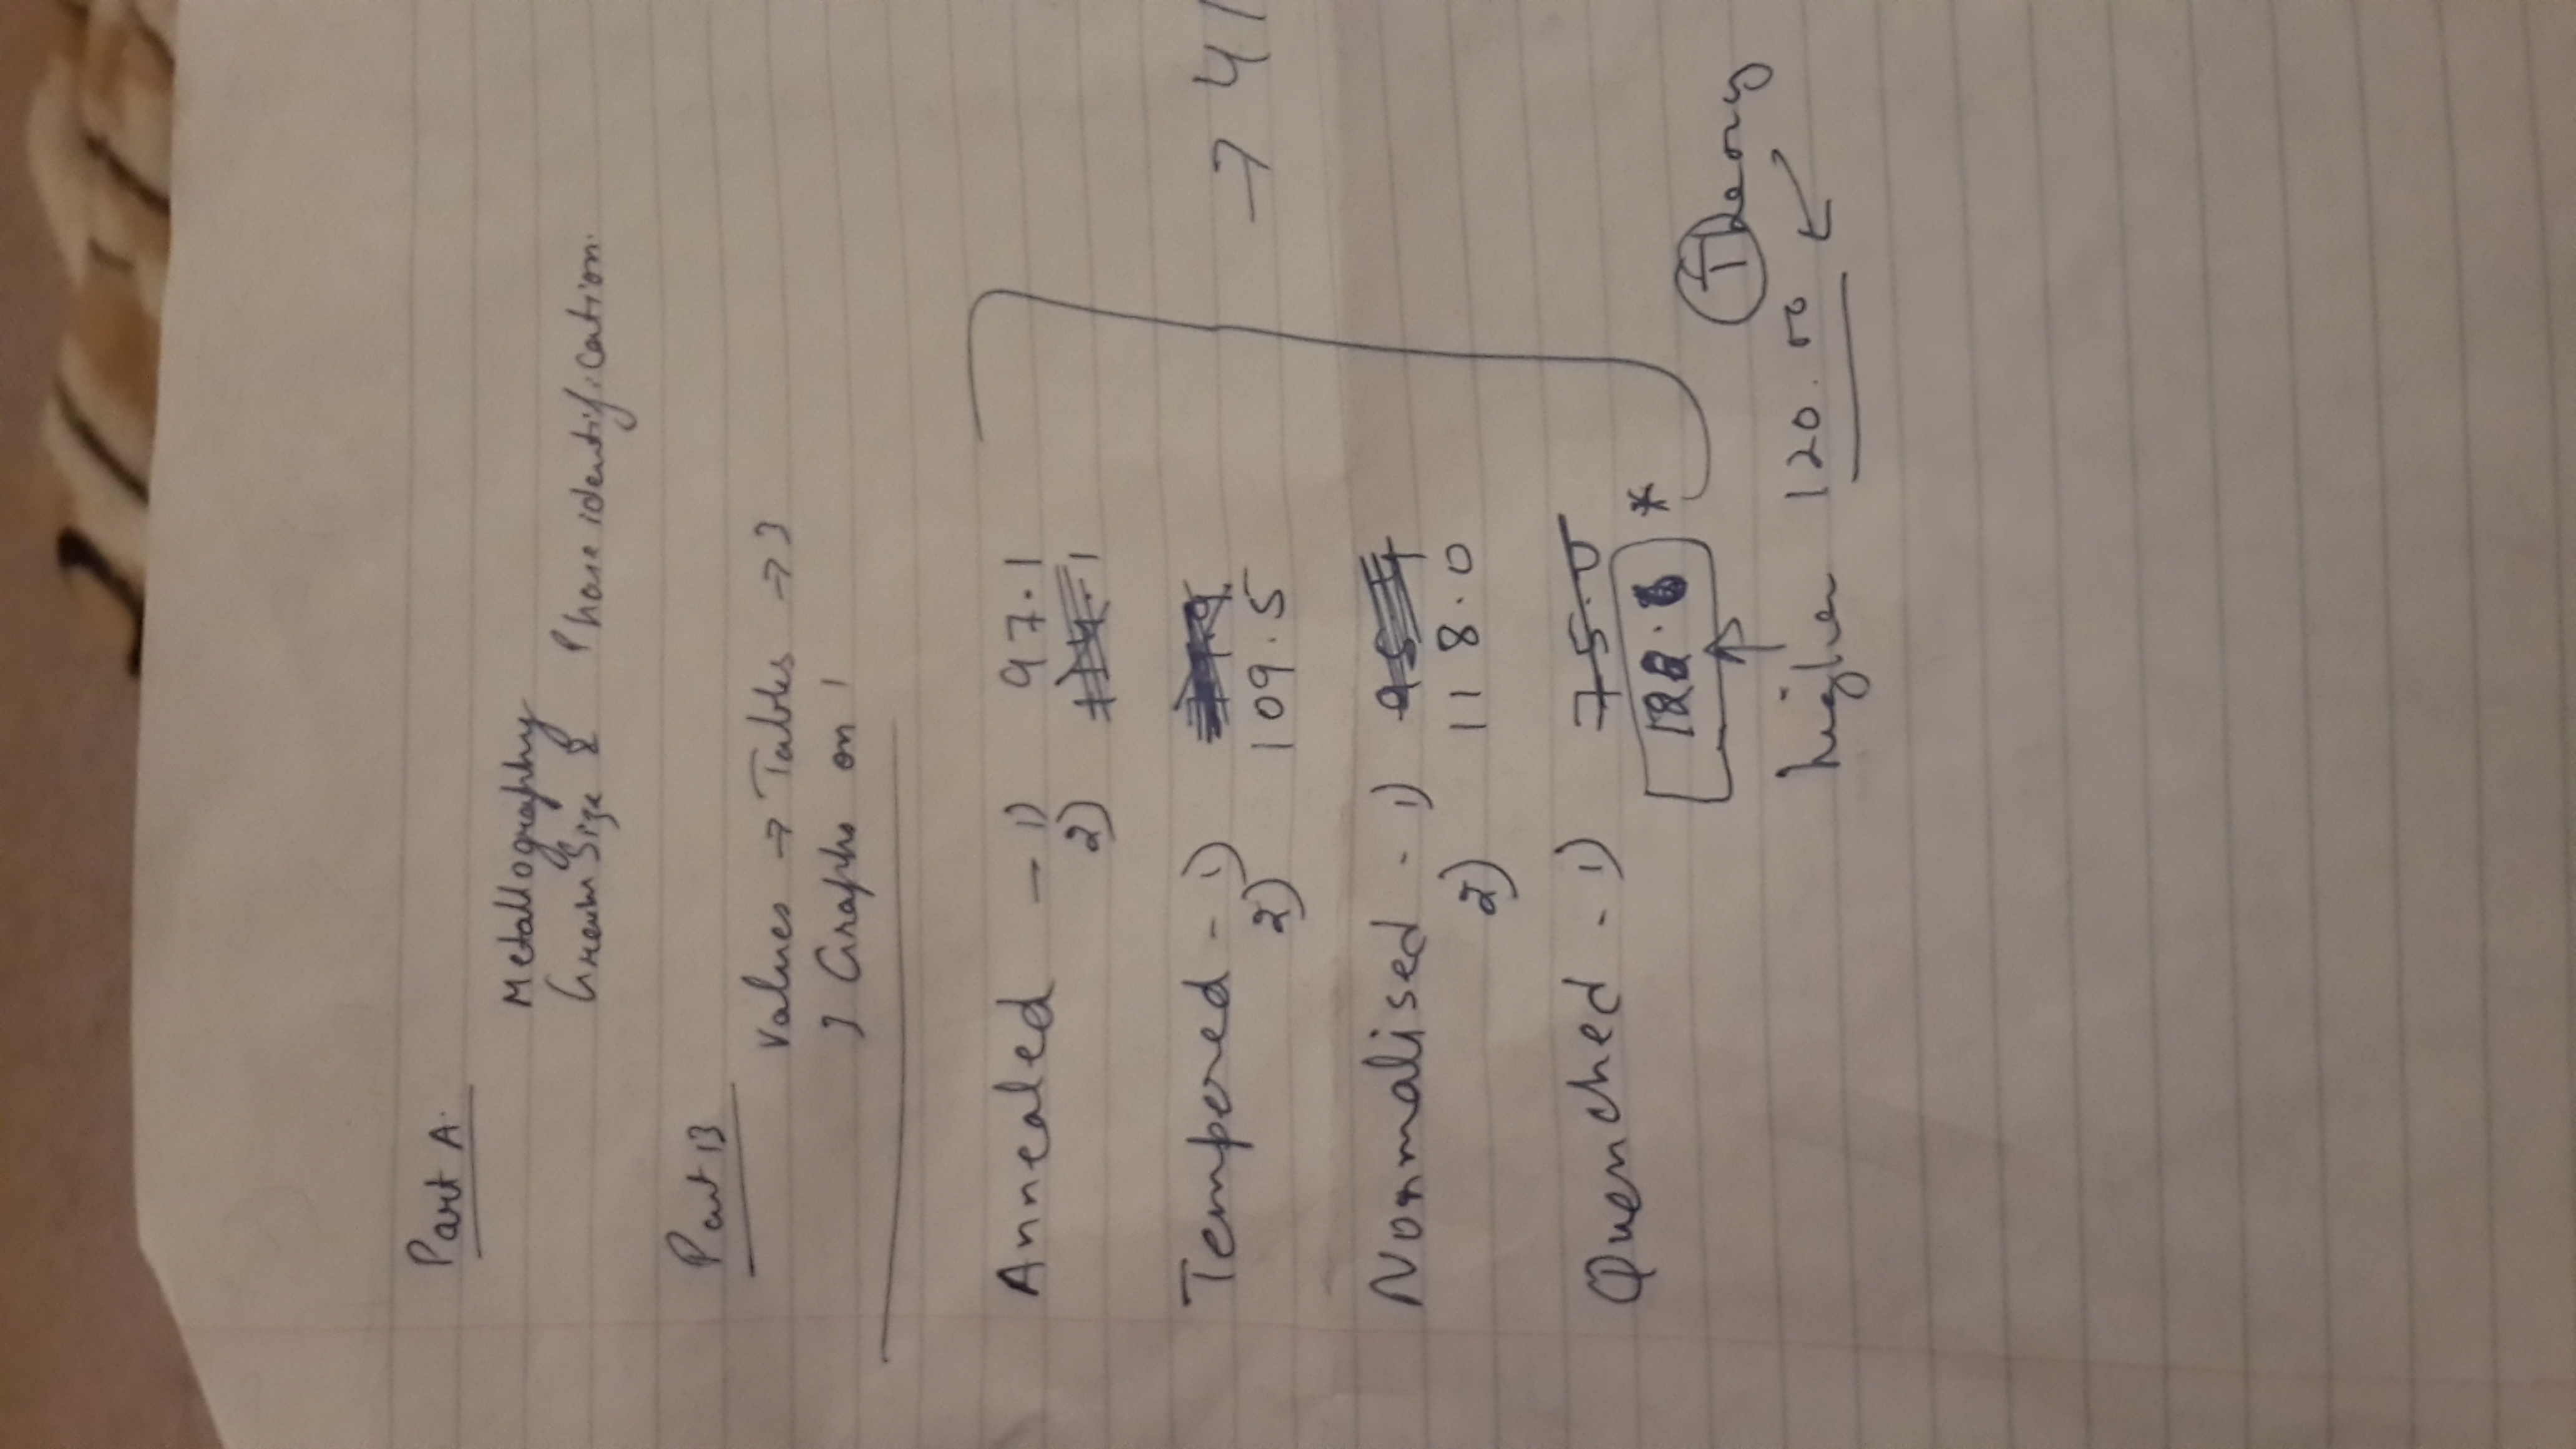 Part A.
Metallography
Grain Size & Phase identification.
Part B
Values → Tables → 3
3 Graphs on 1
Annealed - 1) 97.1
2) 114.1
Tempered - 1)
2) 109.5
Normalised - 1)
2) 118.0
→ 41
Quenched - 1) 75.0
*
Theory
higher 120.00